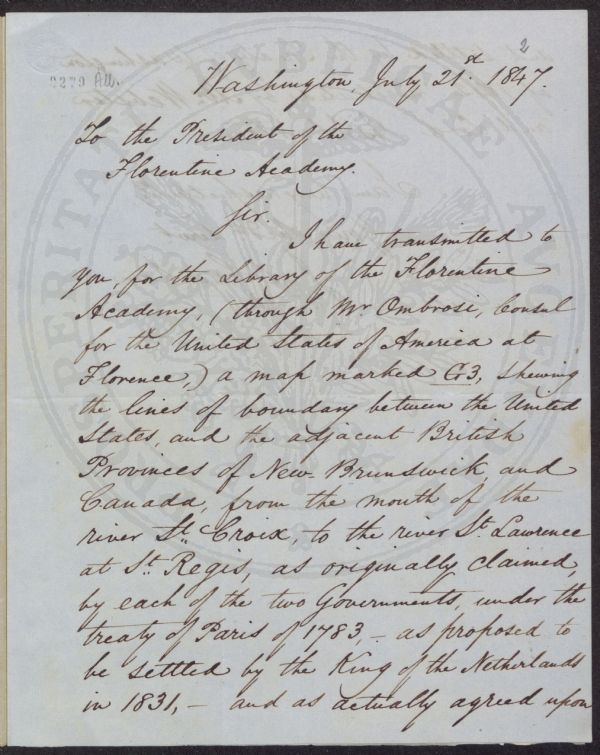 2
2279 All.
Washington, July 21st. 1847.
To the President of the
Florentine Academy.
Sir.
I have transmitted to
you, for the Library of the Florentine
Academy, (through Mr Ombrosi, Consul
for the United States of America at
Florence,) a map marked G3, shewing
the lines of boundary between the United
States, and the adjacent British
Provinces of New-Brunswick and
Canada, from the mouth of the
river St. Croix, to the river St. Lawrence
at St. Regis, as originally claimed,
by each of the two Governments, under the
treaty of Paris of 1783, – as proposed to
be settled by the King of the Netherlands
in 1831, – and as actually agreed upon